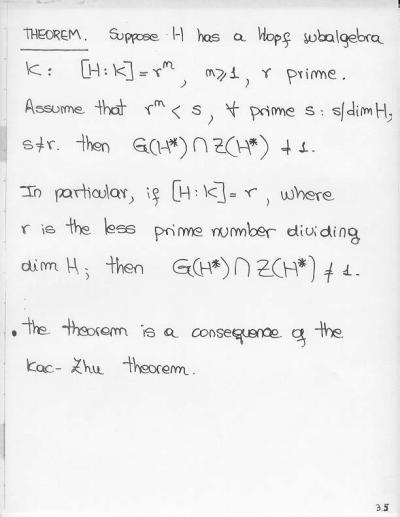 THEOREM. Suppose H has a Hopf subalgebra
K: [H:K]=r^m, m≥1, r prime.
Assume that r^m < s, ∀ prime s: s/dim H,
s≠r. then G(H*) ∩ Z(H*) ≠ 1.
In particular, if [H:K]=r, where
r is the less prime number dividing
dim H; then G(H*) ∩ Z(H*) ≠ 1.
• the theorem is a consequence of the
Kac-Zhu theorem.
3.5